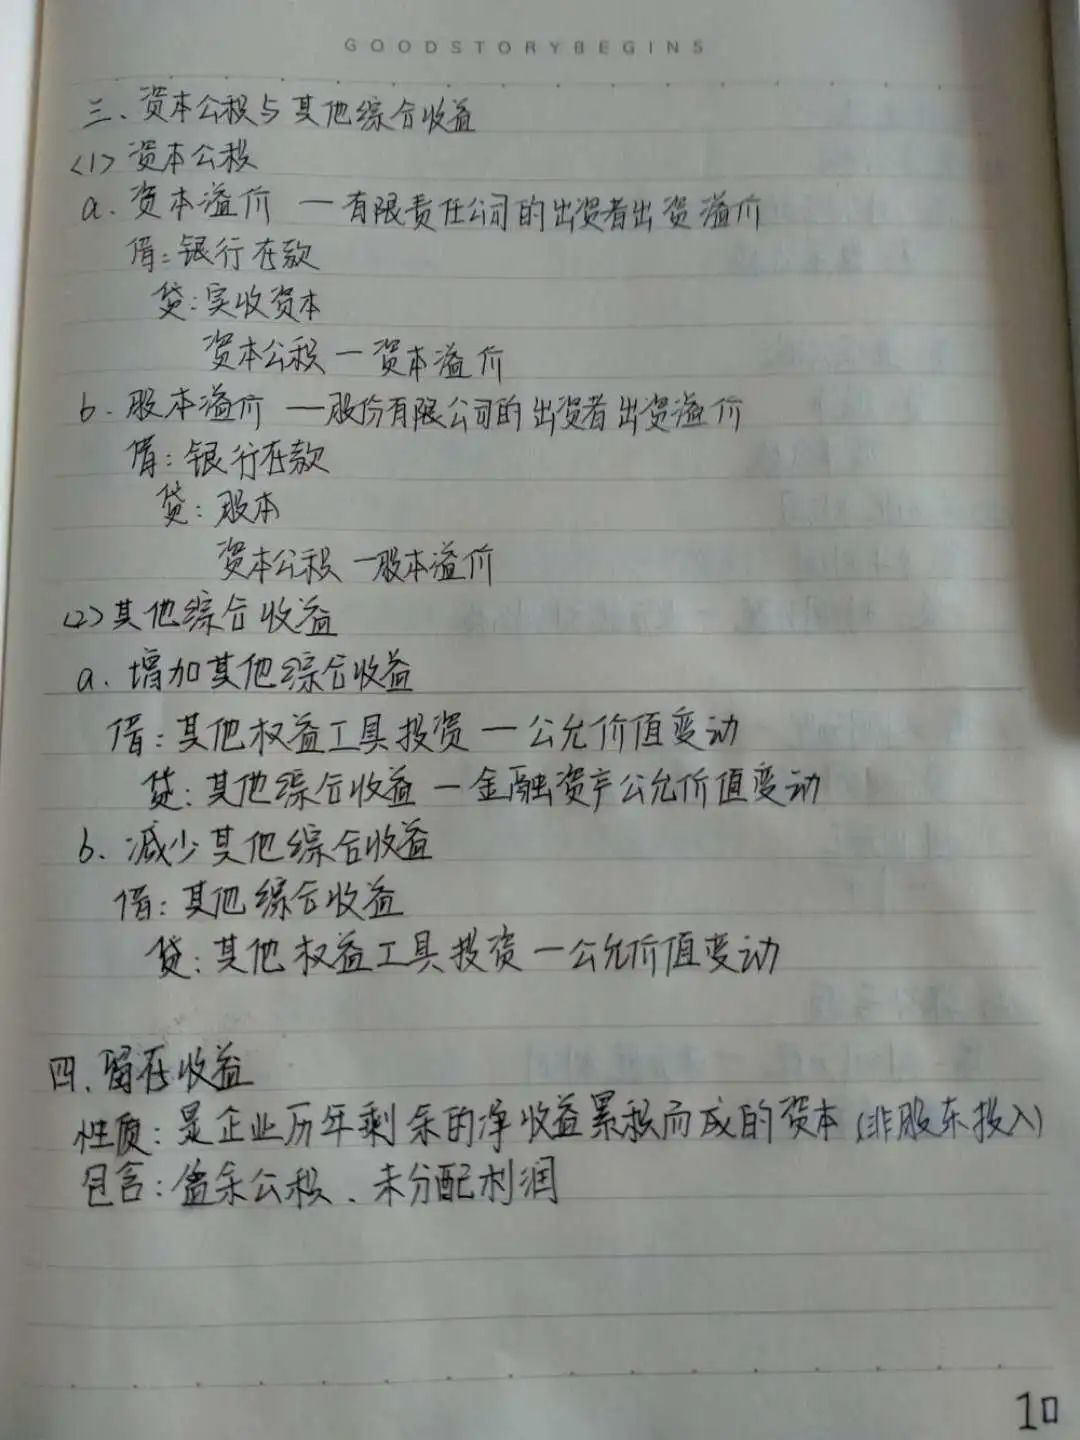 GOODSTORYBEGINS
三、资本公积与其他综合收益
(1) 资本公积
a. 资本溢价 —有限责任公司的出资者出资溢价
借:银行存款
贷:实收资本
资本公积—资本溢价
b. 股本溢价 —股份有限公司的出资者出资溢价
借:银行存款
贷:股本
资本公积—股本溢价
(2) 其他综合收益
a. 增加其他综合收益
借:其他权益工具投资—公允价值变动
贷:其他综合收益—金融资产公允价值变动
b. 减少其他综合收益
借:其他综合收益
贷:其他权益工具投资—公允价值变动
四、留存收益
性质:是企业历年剩余的净收益累积而成的资本(非股东投入)
包含:盈余公积、未分配利润
10